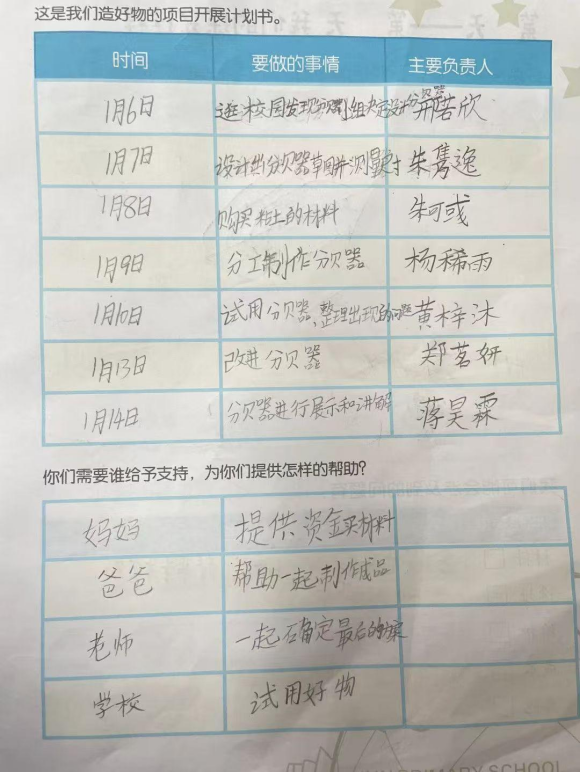 这是我们造好物的项目开展计划书。
时间 要做的事情 主要负责人
1月6日 逛校园发现问题,小组决定设计分贝器 邢若欣
1月7日 设计出分贝器草图并测量尺寸 朱隽逸
1月8日 购买粘土的材料 朱可彧
1月9日 分工制作分贝器 杨稀雨
1月10日 试用分贝器,整理出现的问题 黄梓沐
1月13日 改进分贝器 郑茗妍
1月14日 分贝器进行展示和讲解 蒋昊霖
你们需要谁给予支持,为你们提供怎样的帮助?
妈妈 提供资金买材料
爸爸 帮助一起制作成品
老师 一起确定最后的方案
学校 试用好物
PRIMARY SCHOOL